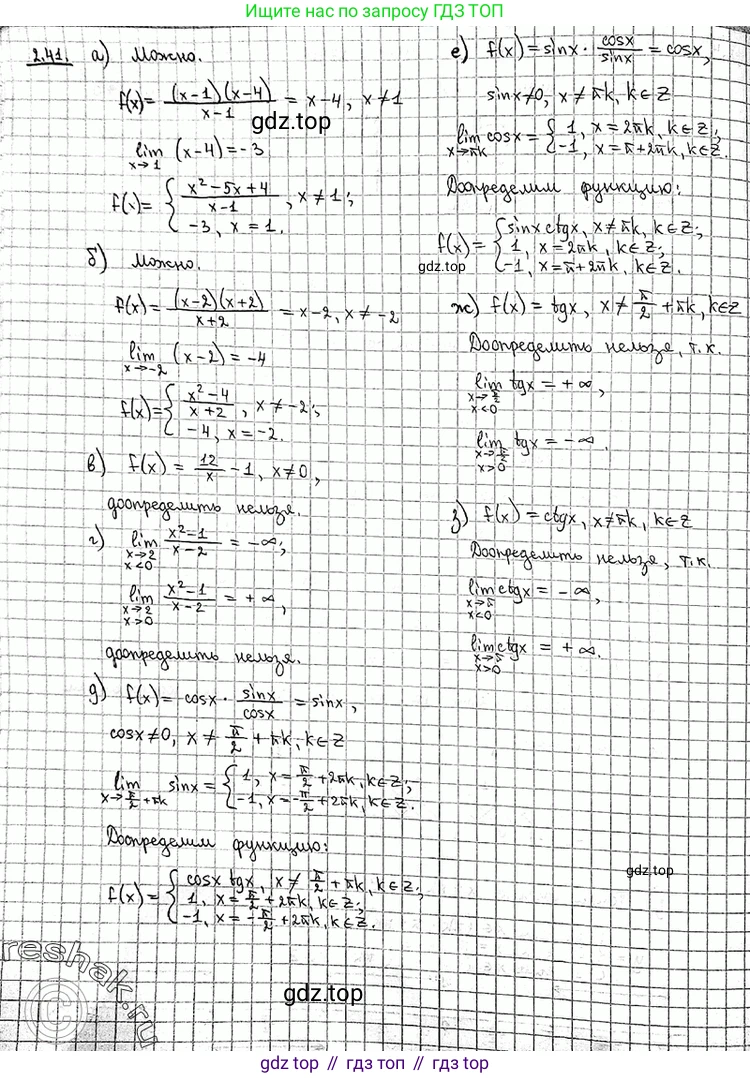 Ищите нас по запросу ГДЗ ТОП
2.41. а) Можно.
f(x) = (x-1)(x-4) / x-1 = x-4, x≠1
gdz.top
lim x→1 (x-4) = -3
f(x) = { x²-5x+4 / x-1, x≠1;
-3, x=1.
б) Можно.
f(x) = (x-2)(x+2) / x+2 = x-2, x≠-2
lim x→-2 (x-2) = -4
f(x) = { x²-4 / x+2, x≠-2;
-4, x=-2.
в) f(x) = 12/x - 1, x≠0,
доопределить нельзя.
г) lim x→2 x<0 x²-1 / x-2 = -∞;
lim x→2 x>0 x²-1 / x-2 = +∞,
доопределить нельзя.
д) f(x) = cosx · sinx/cosx = sinx,
cosx≠0, x≠ π/2 + πk, k∈Z
lim x→π/2+πk sinx = { 1, x=π/2+2πk, k∈Z;
-1, x=-π/2+2πk, k∈Z.
Доопределим функцию:
f(x) = { cosx tgx, x≠π/2+πk, k∈Z;
1, x=π/2+2πk, k∈Z;
-1, x=-π/2+2πk, k∈Z.
е) f(x) = sinx · cosx/sinx = cosx,
sinx≠0, x≠πk, k∈Z
lim x→πk cosx = { 1, x=2πk, k∈Z;
-1, x=π+2πk, k∈Z.
Доопределим функцию:
f(x) = { sinx ctgx, x≠πk, k∈Z;
1, x=2πk, k∈Z;
-1, x=π+2πk, k∈Z.
gdz.top
ж) f(x) = tgx, x≠ π/2 + πk, k∈Z
Доопределить нельзя, т.к.
lim x→π/2 x<0 tgx = +∞,
lim x→π/2 x>0 tgx = -∞.
з) f(x) = ctgx, x≠πk, k∈Z
Доопределить нельзя, т.к.
lim x→π x<0 ctgx = -∞,
lim x→π x>0 ctgx = +∞.
gdz.top
reshak.ru
gdz.top
gdz top // гдз топ // gdz top